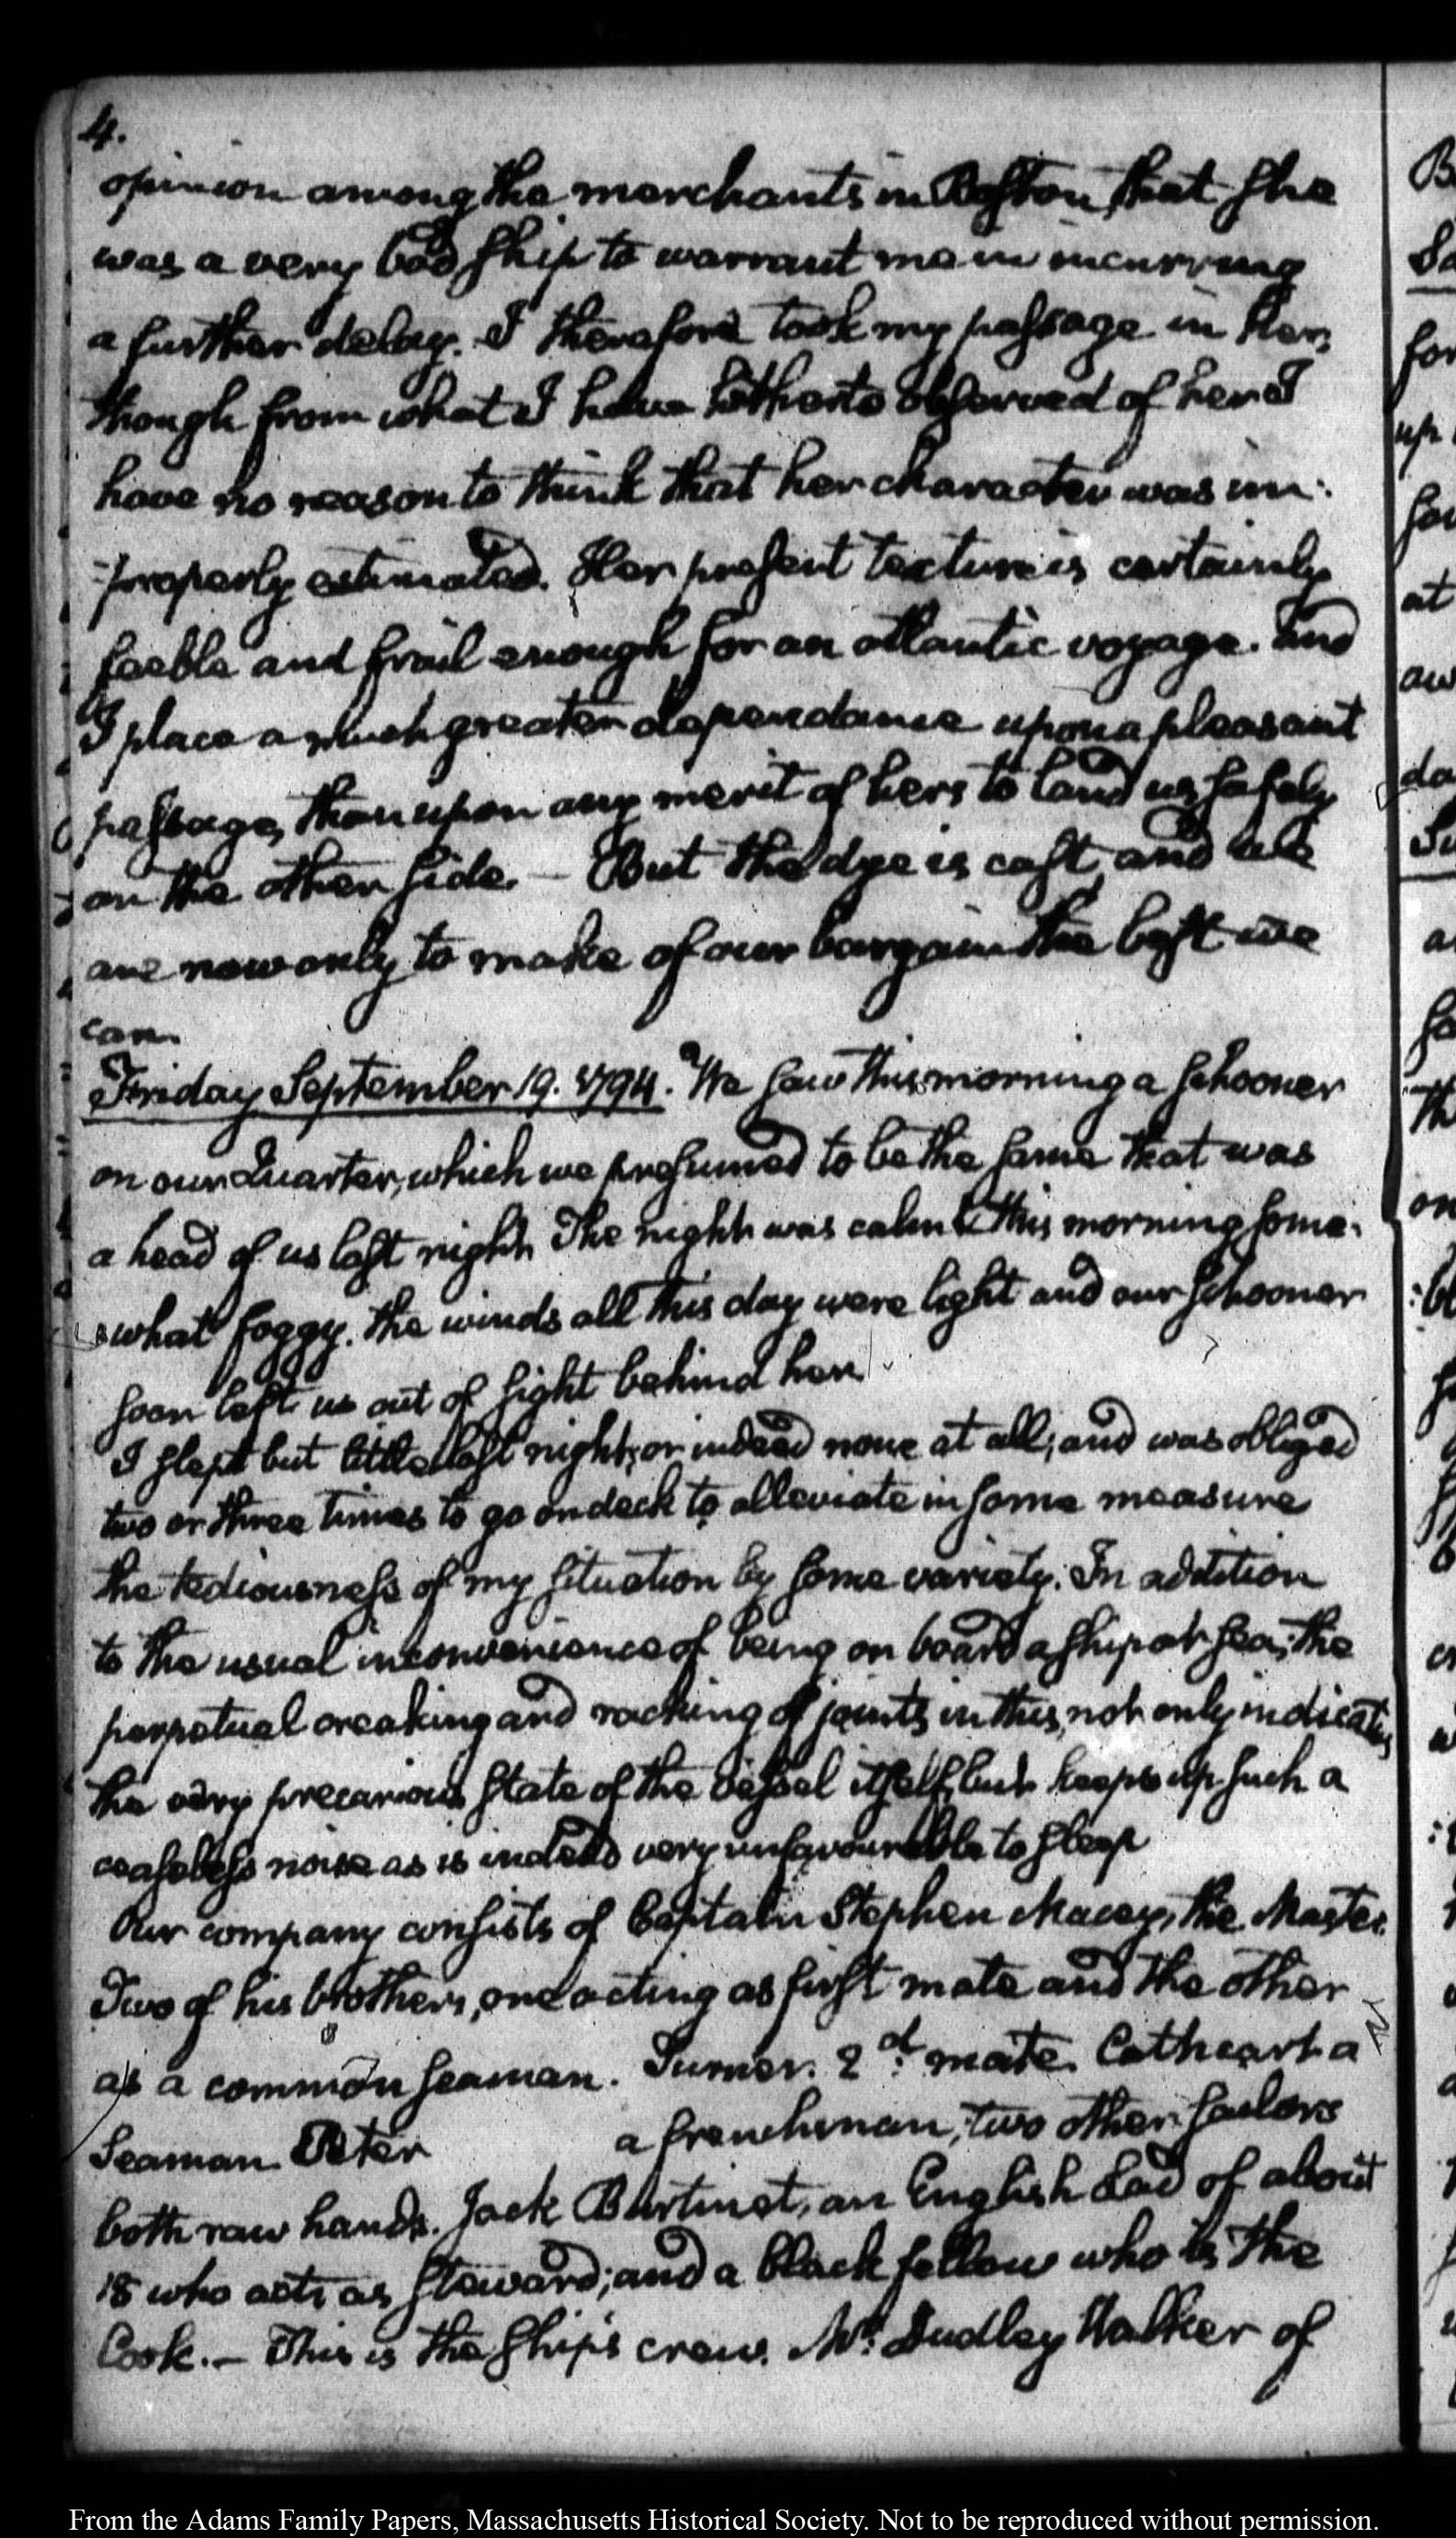 4.
opinion among the merchants in Boston, that she
was a very bad ship to warrant me in incurring
a further delay. I therefore took my passage in her,
though from what I have hitherto observed of her I
have no reason to think that her character was im:
:properly estimated. Her present texture is certainly
feeble and frail enough for an atlantic voyage. And
I place a much greater dependance upon a pleasant
passage, than upon any merit of hers to land us safely
on the other side. — But the dye is cast, and we
are now only to make of our bargain the best we
can.
Friday September 19. 1794. We saw this morning a schooner
on our Quarter, which we presumed to be the same that was
a head of us last night. The night was calm & this morning some-
what foggy. the winds all this day were light and our schooner
soon left us out of sight behind her.
I slept but little last night; or indeed none at all; and was obliged
two or three times to go on deck to alleviate in some measure
the tediousness of my situation by some variety. In addition
to the usual inconvenience of being on board a ship at sea, the
perpetual creaking and racking of joints in this, not only indicates
the very precarious state of the vessel itself, but keeps up such a
ceaseless noise as is indeed very unfavourable to sleep
Our company consists of Captain Stephen Macey, the Master.
Two of his brothers, one acting as first mate and the other
as a common seaman. Turner. 2d: mate. Cathcart a
Seaman Peter a frenchman, two other sailors
both raw hands. Jack Burtinot, an English Lad of about
18 who acts as steward; and a black fellow who is the
Cook. — This is the ship's crew. Mr: Dudley Walker of
From the Adams Family Papers, Massachusetts Historical Society. Not to be reproduced without permission.